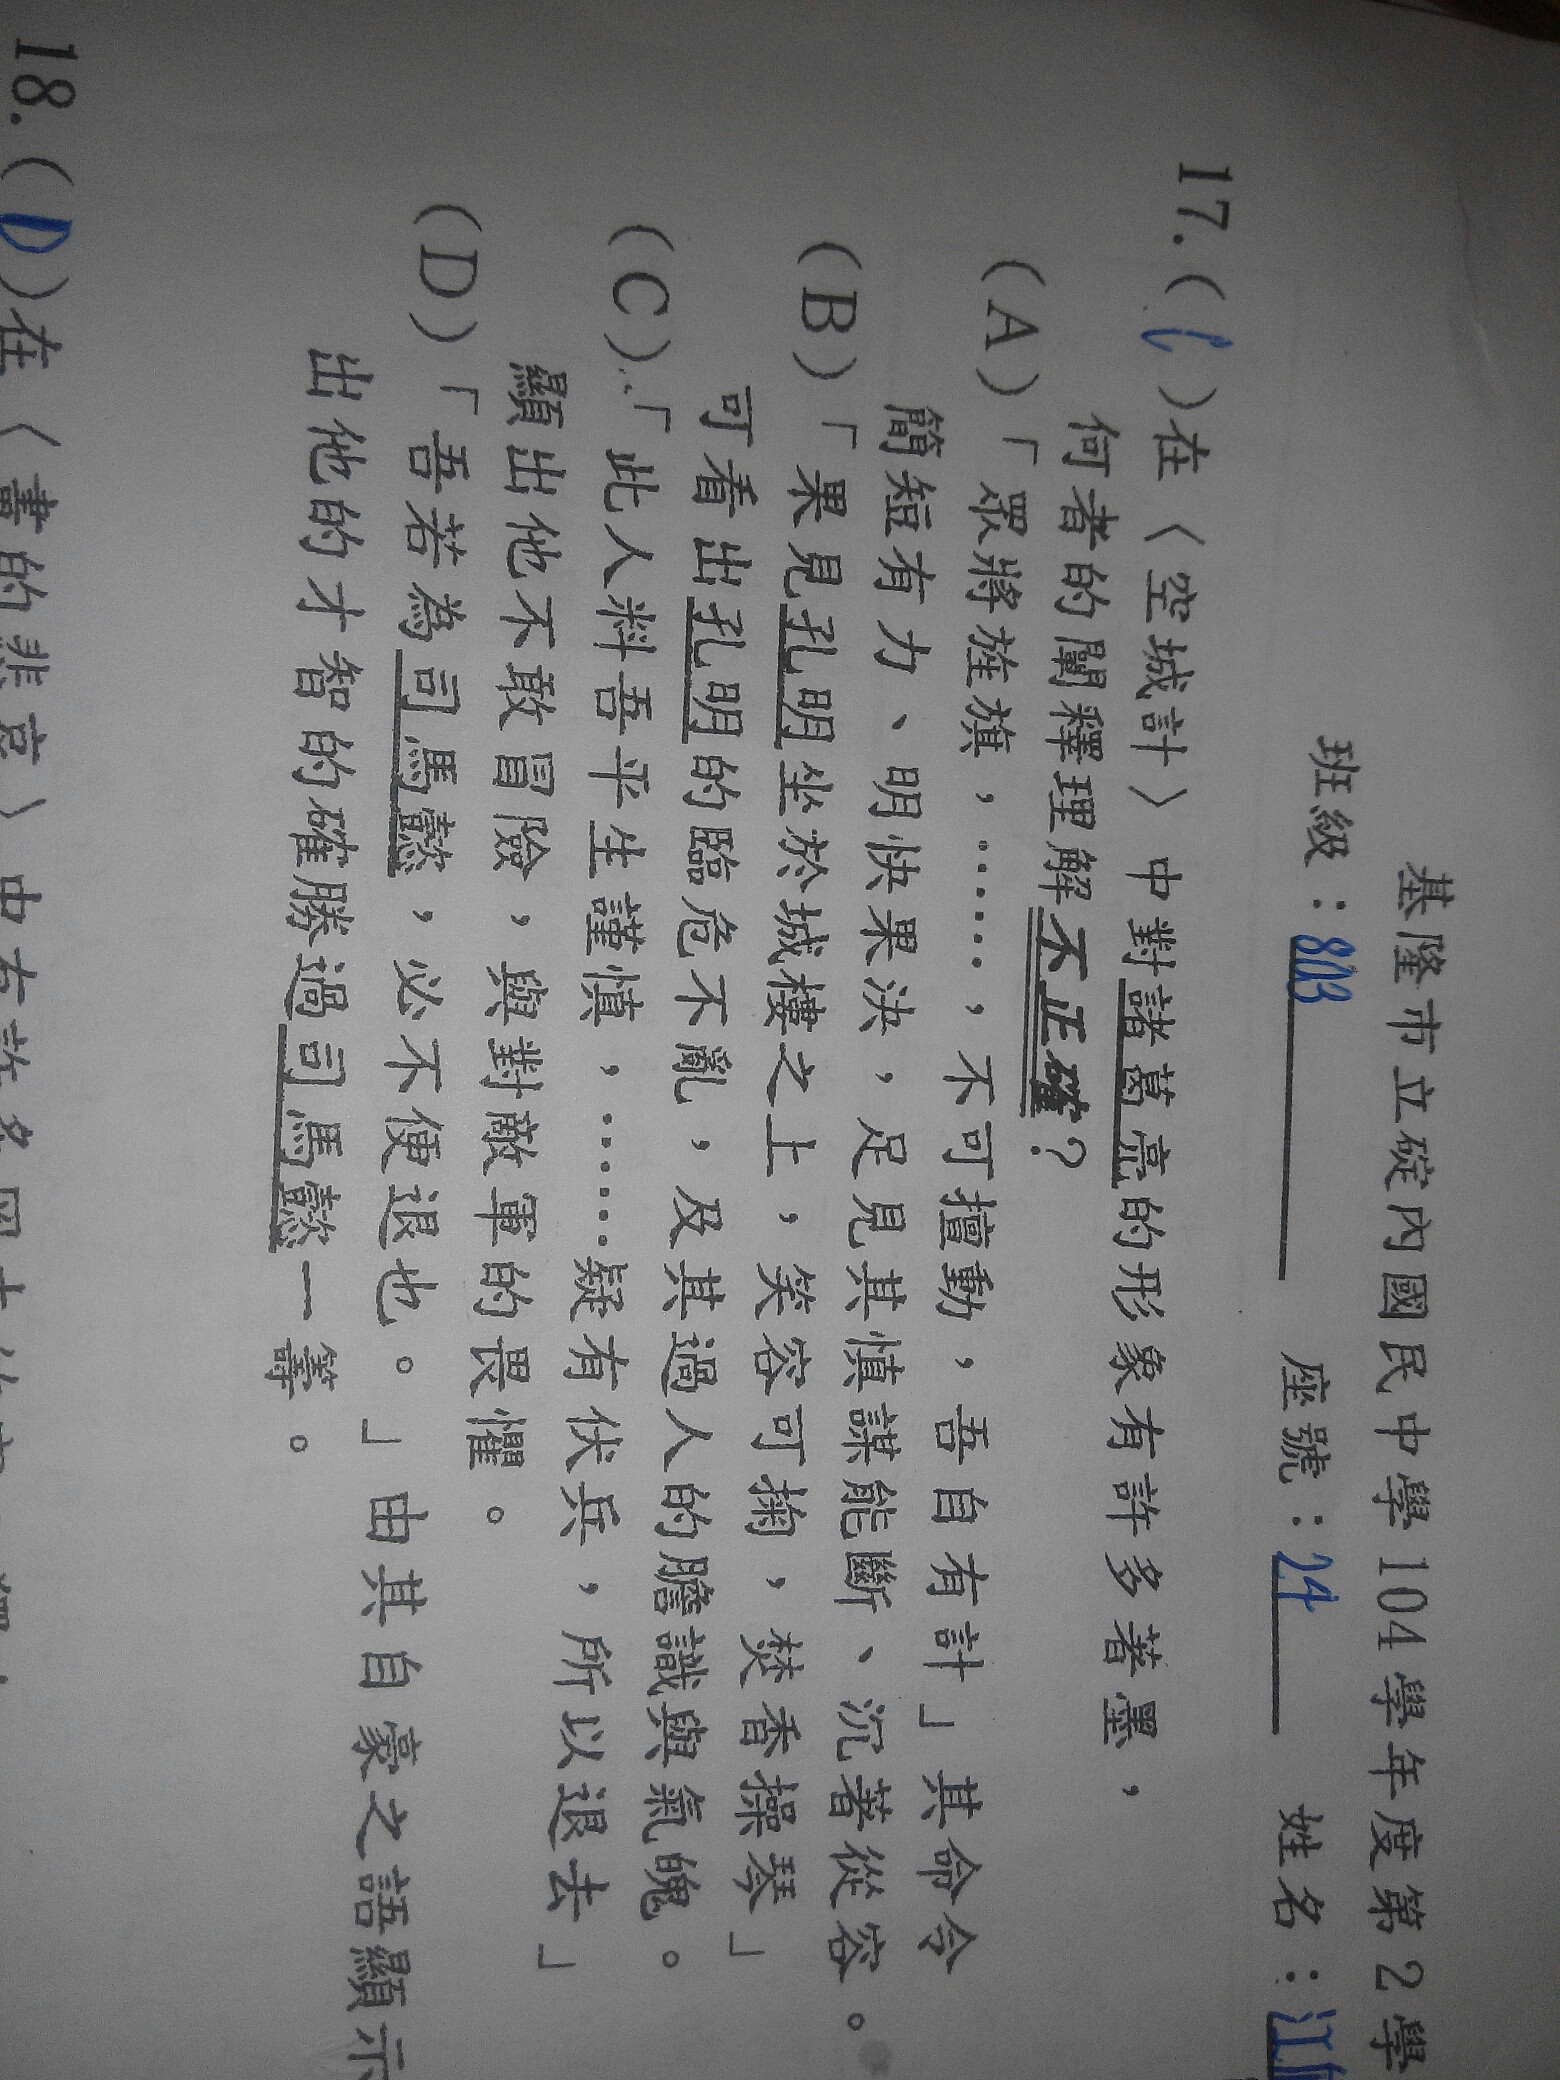 基隆市立碇內國民中學104學年度第2學
班級：803 座號：24 姓名：江
17.(C)在〈空城計〉中對諸葛亮的形象有許多著墨，
何者的闡釋理解不正確？
(A)「眾將旌旗，……，不可擅動，吾自有計」其命令
簡短有力、明快果決，足見其慎謀能斷、沉著從容。
(B)「果見孔明坐於城樓之上，笑容可掬，焚香操琴」
可看出孔明的臨危不亂，及其過人的膽識與氣魄。
(C)「此人料吾平生謹慎，……疑有伏兵，所以退去」
顯出他不敢冒險，與對敵軍的畏懼。
(D)「吾若為司馬懿，必不便退也。」由其自豪之語顯示
出他的才智的確勝過司馬懿一籌。
18.(D)在〈書的悲哀〉中